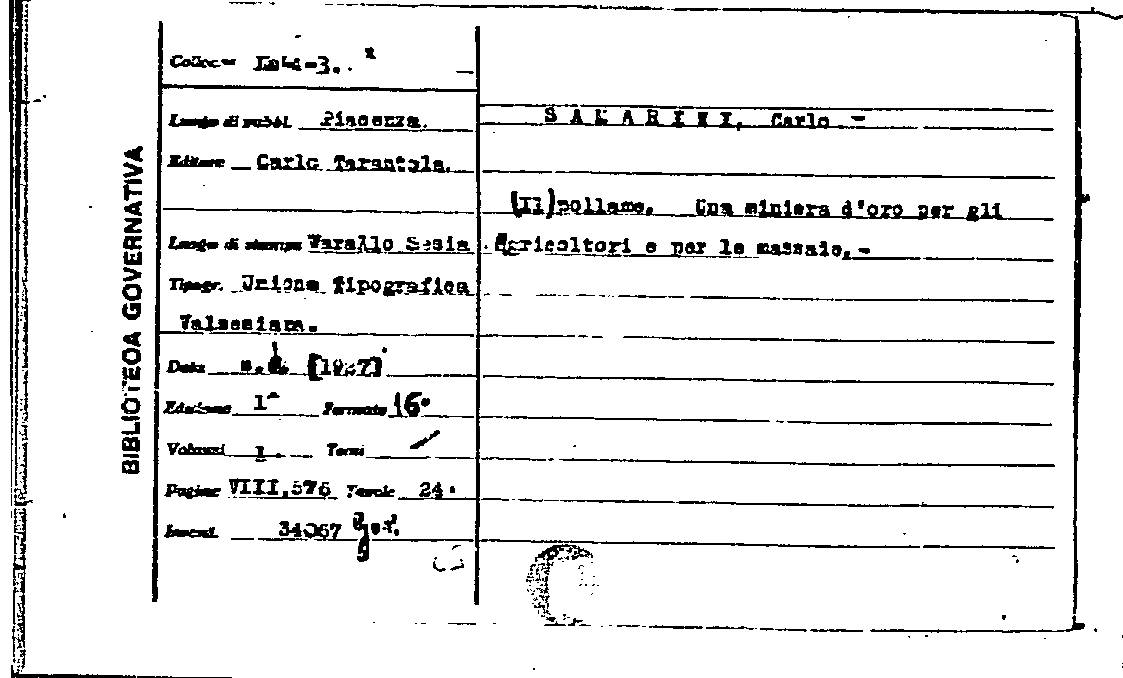 BIBLIOTECA GOVERNATIVA
Luogo di pubbl. Piacenza.
Editore Carlo Tarantola.
Luogo di stampa Varallo Sesia
Tipogr. Unione Tipografica
Valsesiana.
Data s.d. [1927]
Edizione 1ª Formato 16º
Volumi 1. Tomi
Pagine VIII,576 Tavole 24.
Invent. 34067
Carlo -
(Il) pollame. Una miniera d'oro per gli
Agricoltori e per le massaie.-